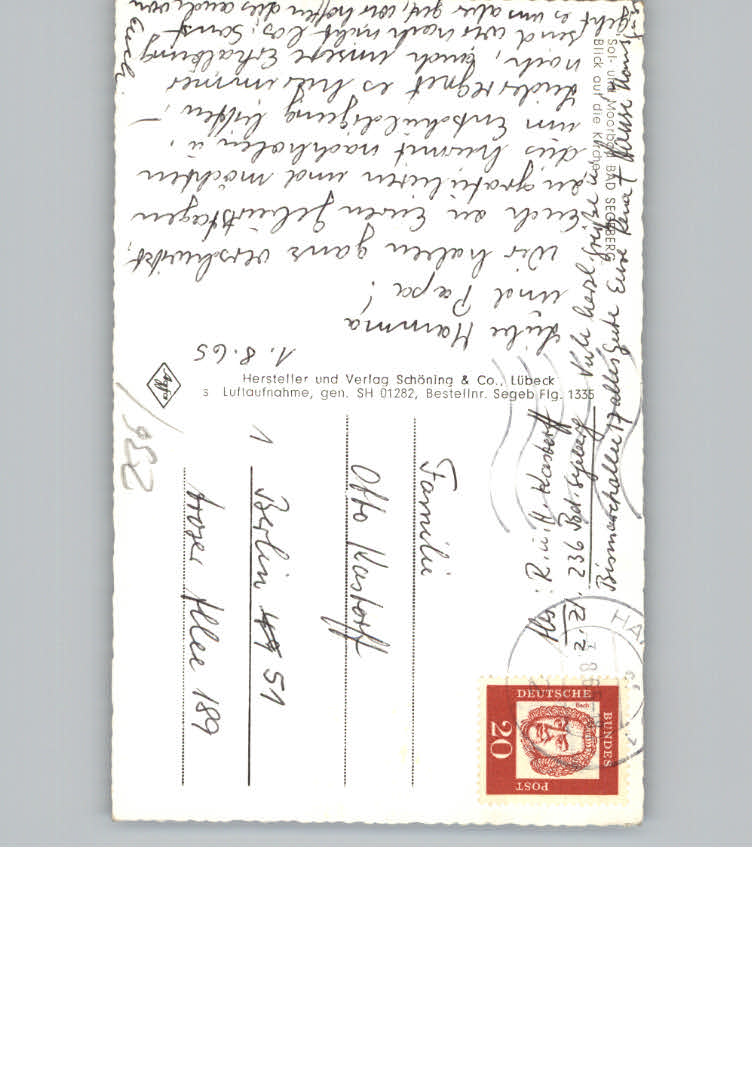 1. 8. 65
Liebe Mamma
und Papa!
Wir haben ganz verschwitzt,
Euch an Euren Geburtstagen
zu gratulieren und möchten
dies hiermit nachholen u.
um Entschuldigung bitten. –
Leider regnet es hier immer
noch, auch unsere Erholung
sind wir noch nicht los. Sonst
geht es uns aber gut, wir hoffen dies auch von
Euch.
Viele herzl. Grüße u.
alles Gute Eure Rena + Hansi
Sol- und Moorbad BAD SEGEBERG
Blick auf die Kirche
Hersteller und Verlag Schöning & Co., Lübeck
s Luftaufnahme, gen. SH 01282, Bestellnr. Segeb Flg. 1335
Agfa
Abs: R. u. H. Kastorff
z. Zt. 236 Bad Segeberg
Bismarckallee 17
Familie
Otto Kastorff
1 Berlin 51
Aroser Allee 189
1952
HA
DEUTSCHE
BUNDES
POST
Bach
20